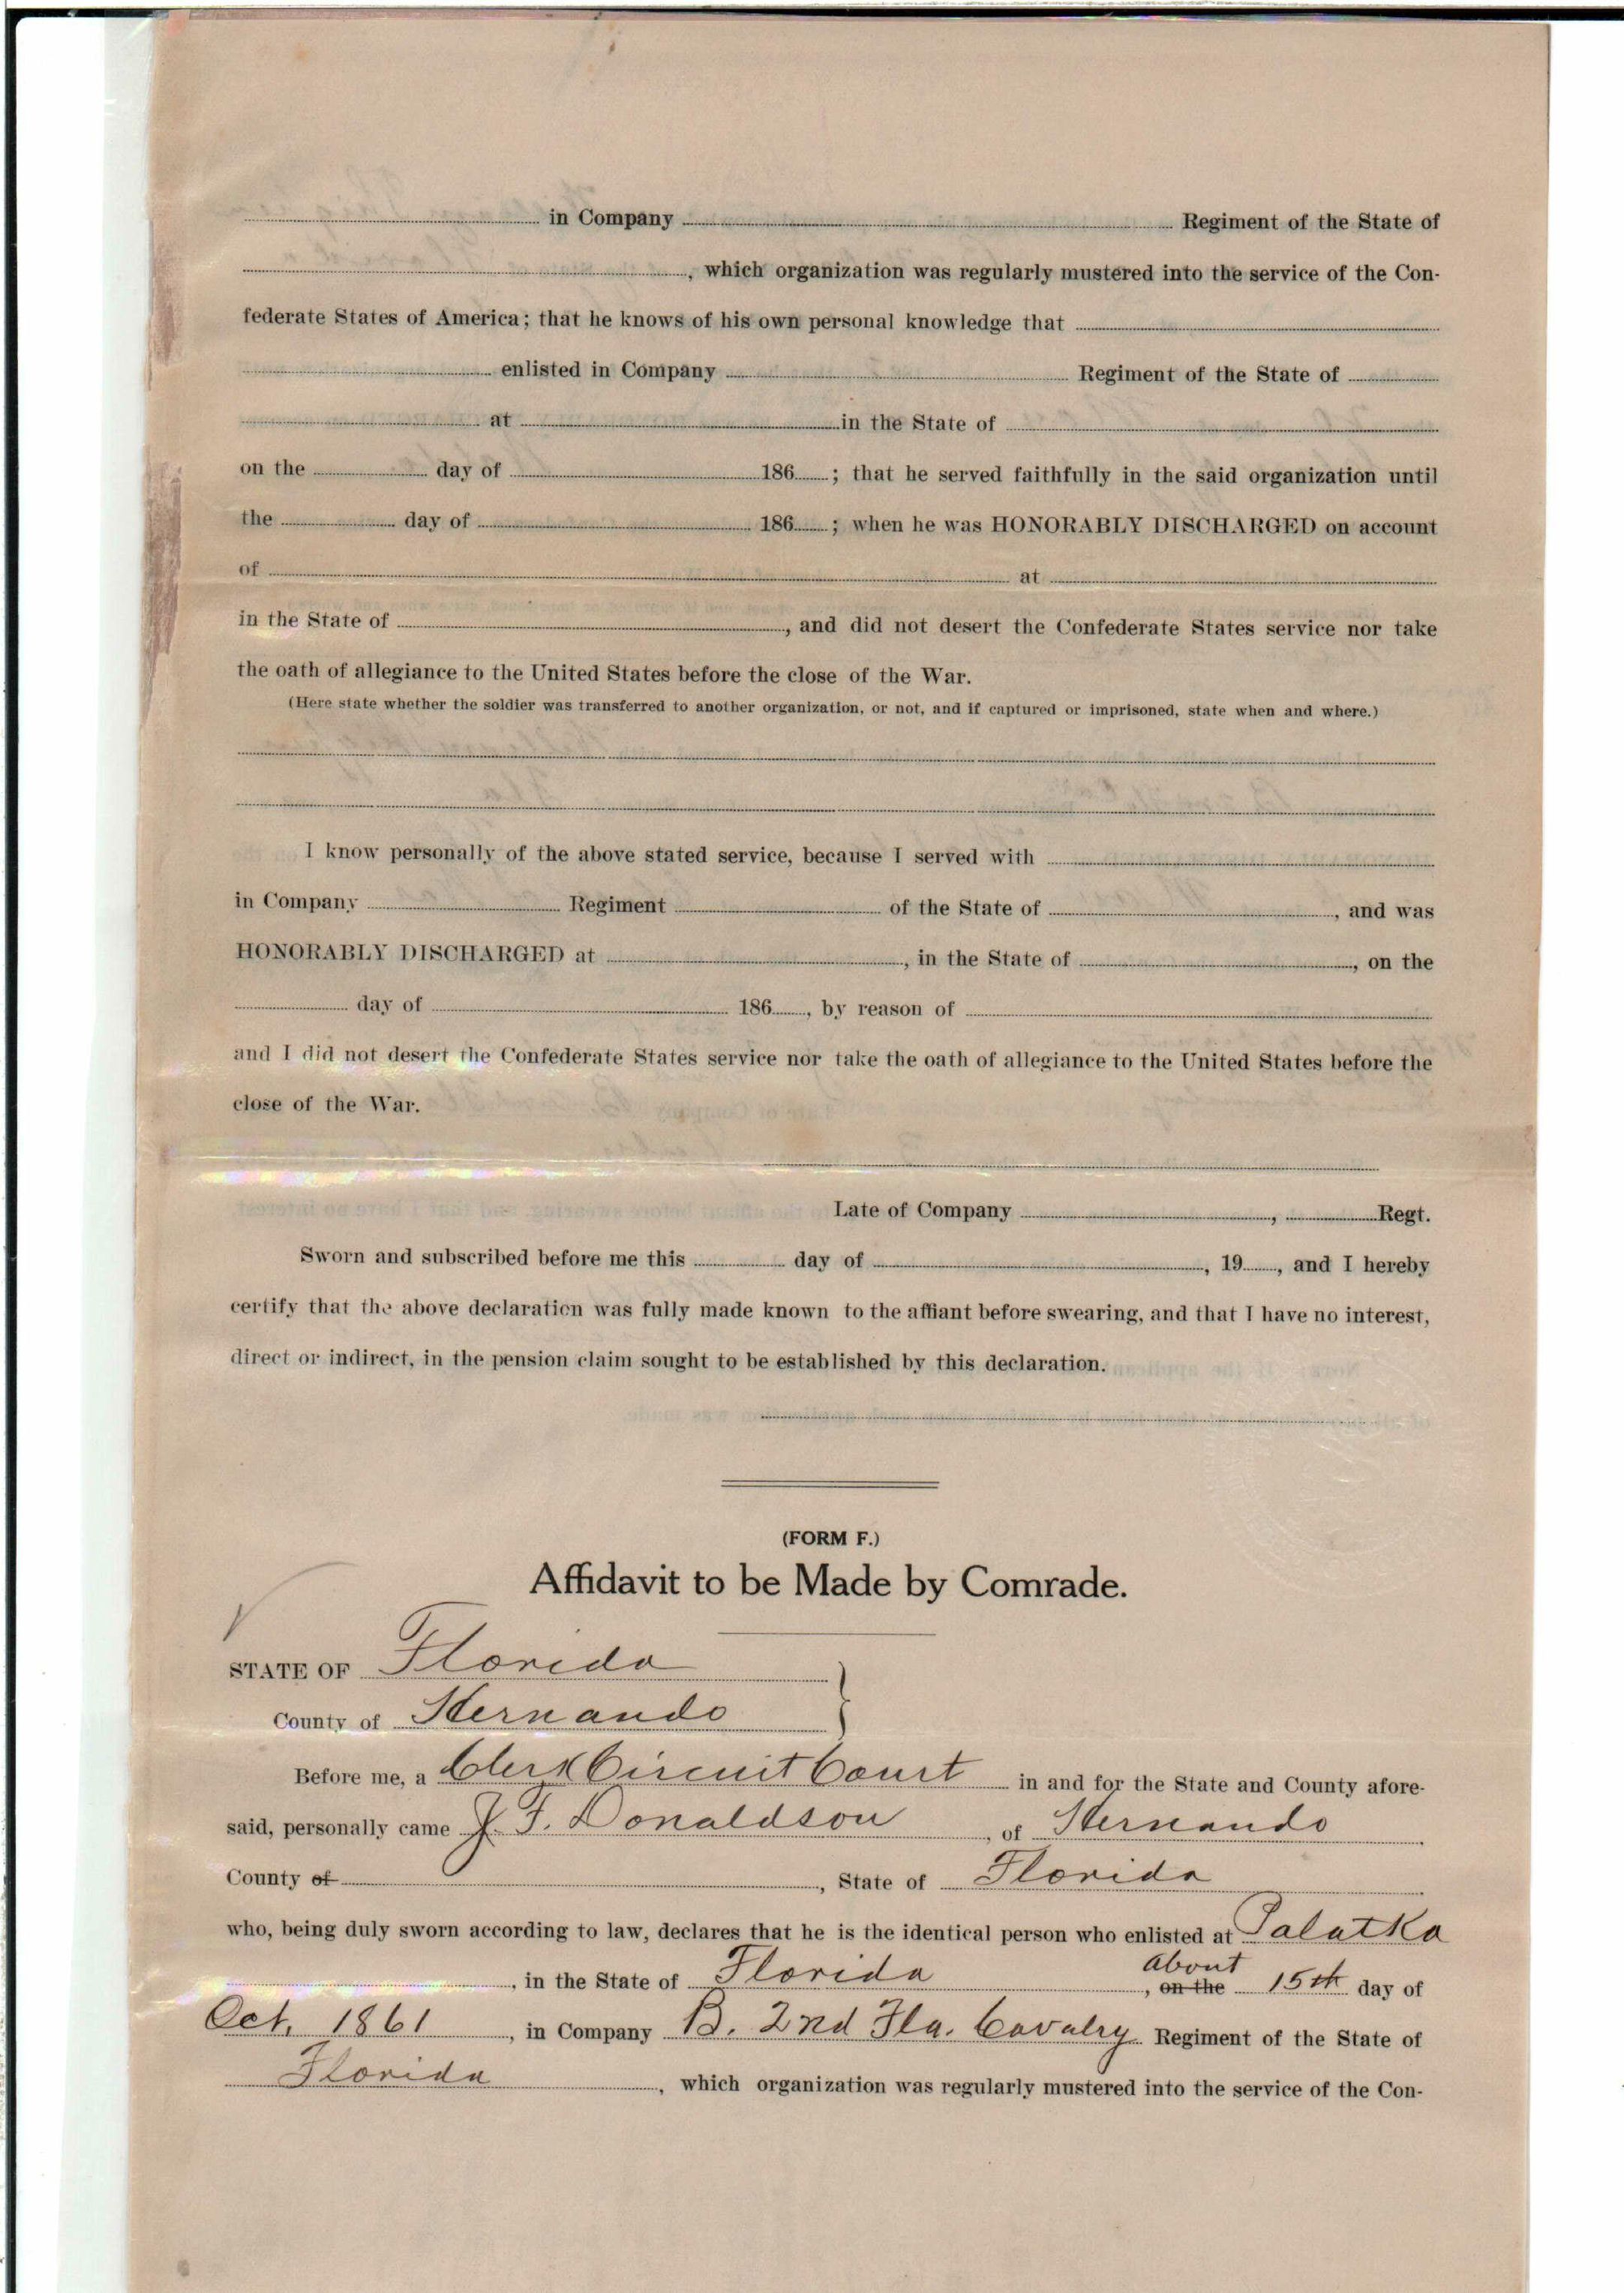 in Company Regiment of the State of
, which organization was regularly mustered into the service of the Con-
federate States of America; that he knows of his own personal knowledge that
enlisted in Company Regiment of the State of
at in the State of
on the day of 186 ; that he served faithfully in the said organization until
the day of 186 ; when he was HONORABLY DISCHARGED on account
of at
in the State of , and did not desert the Confederate States service nor take
the oath of allegiance to the United States before the close of the War.
(Here state whether the soldier was transferred to another organization, or not, and if captured or imprisoned, state when and where.)
I know personally of the above stated service, because I served with
in Company Regiment of the State of , and was
HONORABLY DISCHARGED at , in the State of , on the
day of 186 , by reason of
and I did not desert the Confederate States service nor take the oath of allegiance to the United States before the
close of the War.
Late of Company , Regt.
Sworn and subscribed before me this day of , 19 , and I hereby
certify that the above declaration was fully made known to the affiant before swearing, and that I have no interest,
direct or indirect, in the pension claim sought to be established by this declaration.
(FORM F.)
Affidavit to be Made by Comrade.
STATE OF Florida
County of Hernando
Before me, a Clerk Circuit Court in and for the State and County afore-
said, personally came J. F. Donaldson , of Hernando
County of , State of Florida
who, being duly sworn according to law, declares that he is the identical person who enlisted at Palatka
about
, in the State of Florida , on the 15th day of
Oct. 1861 , in Company B. 2nd Fla. Cavalry Regiment of the State of
Florida , which organization was regularly mustered into the service of the Con-